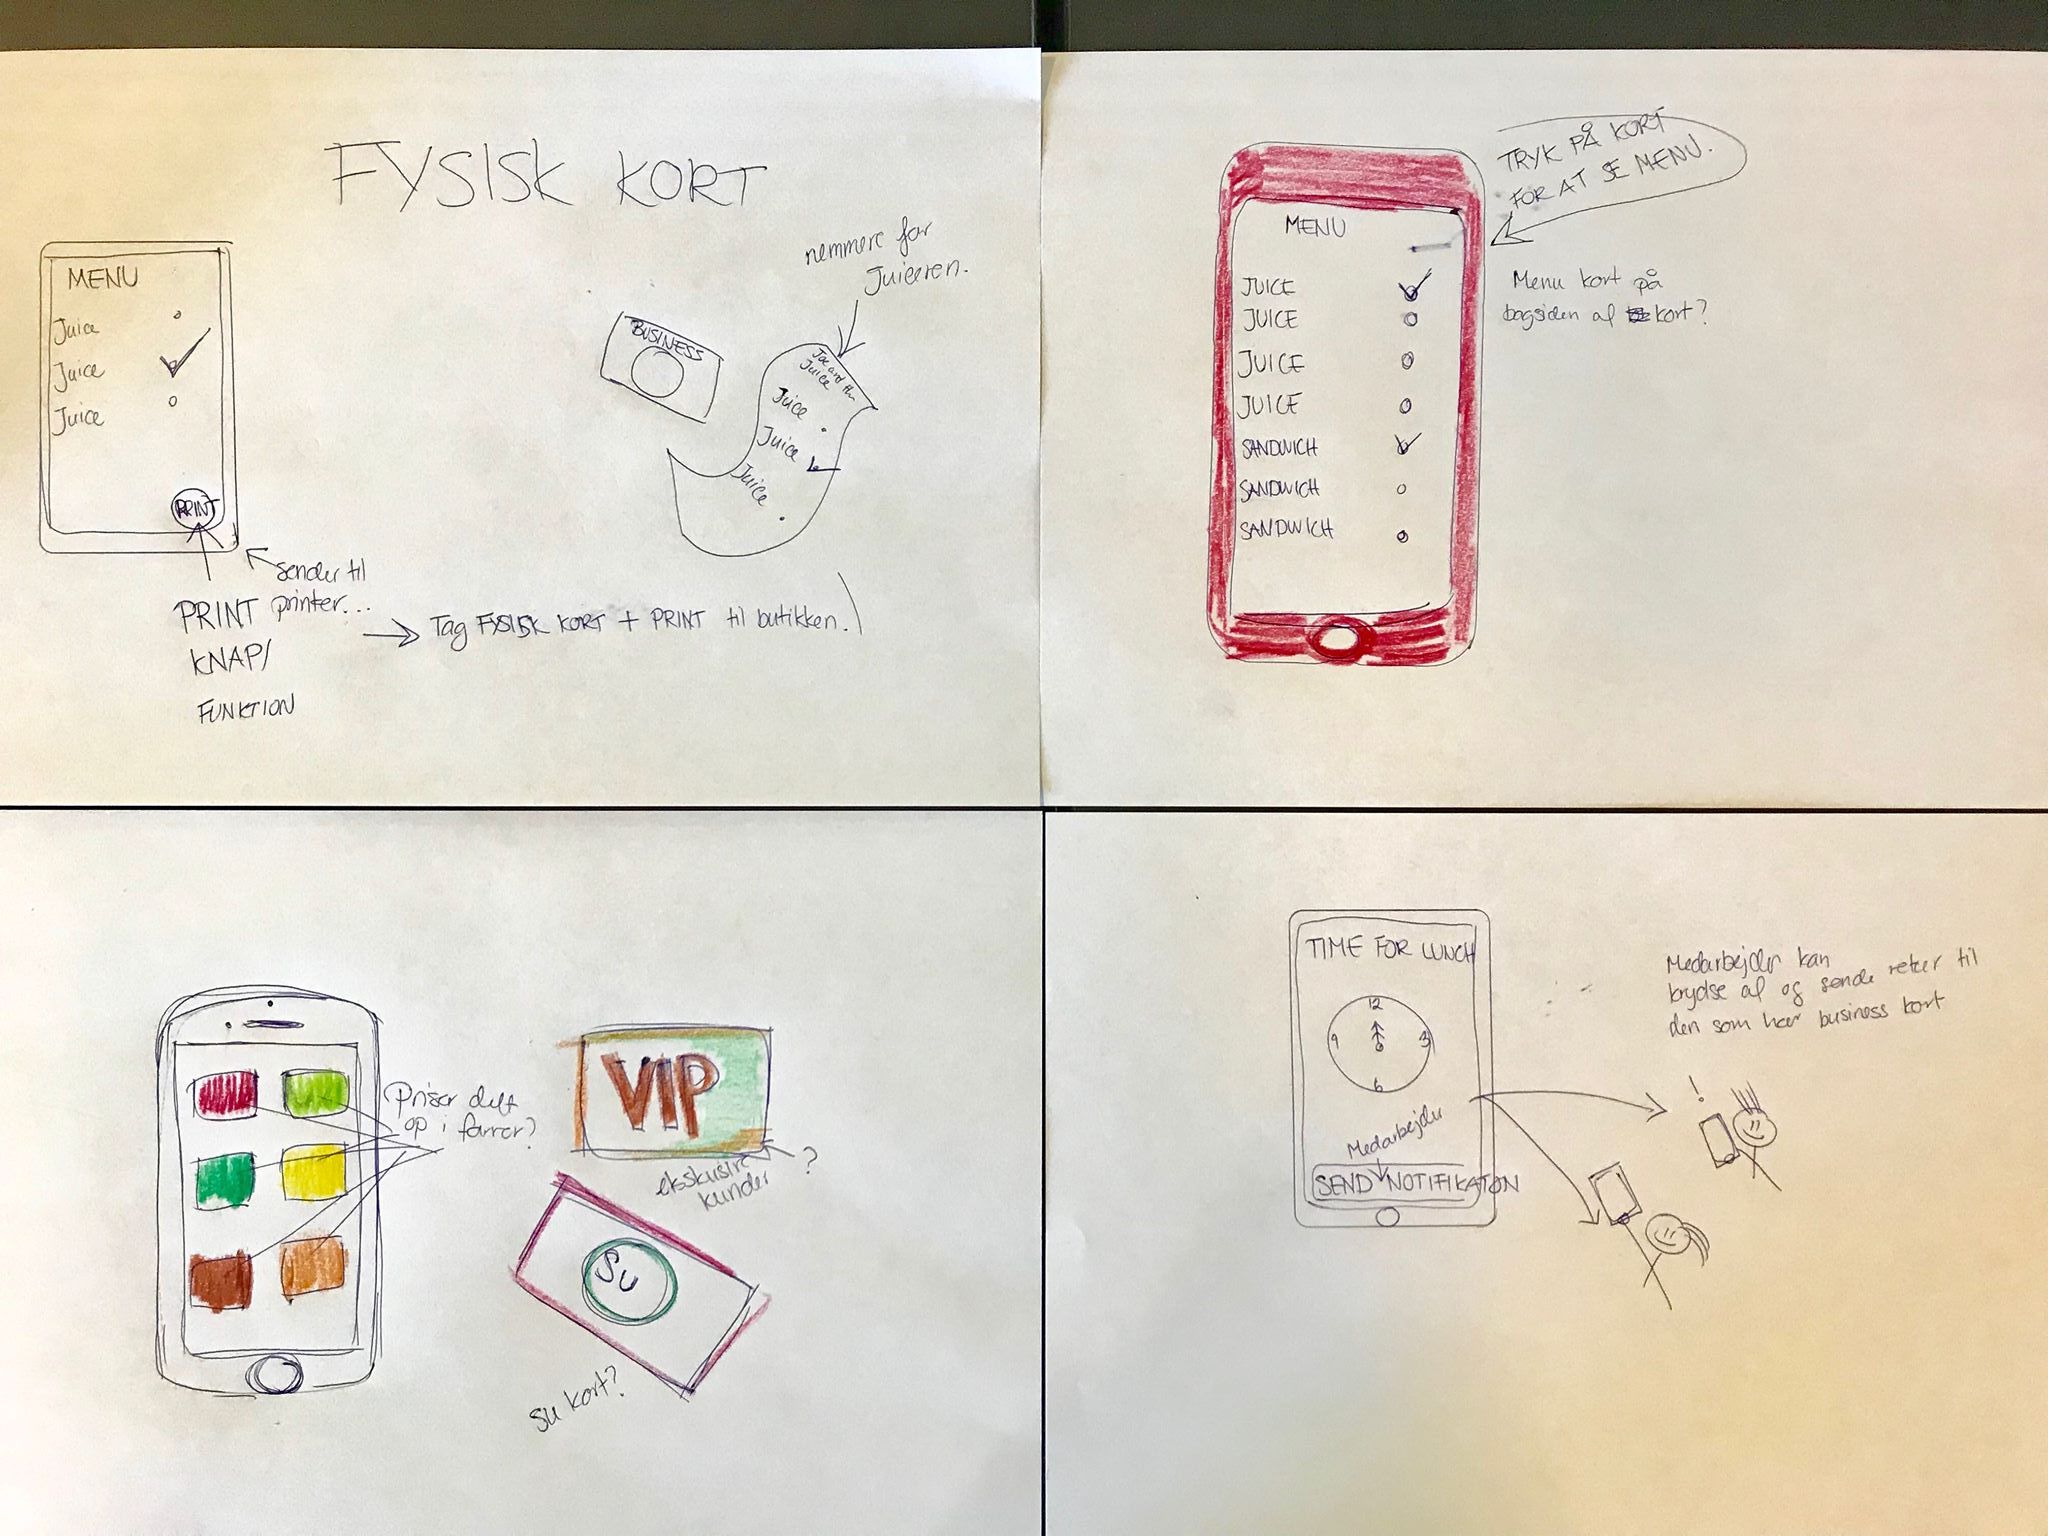 FYSISK KORT
MENU
Juice
Juice
Juice
PRINT
sender til
printer...
PRINT
KNAP/
FUNKTION
Tag FYSISK KORT + PRINT til butikken.
BUSINESS
nemmere for
Juiceren.
Joe and the
Juice
Juice
Juice
Juice
TRYK PÅ KORT
FOR AT SE MENU.
Menu kort på
bagsiden af kort?
MENU
JUICE
JUICE
JUICE
JUICE
SANDWICH
SANDWICH
SANDWICH
Priser delt
op i farver?
VIP
?
kunder
SU
SU kort?
TIME FOR LUNCH
12
9 3
6
Medarbejder
SEND NOTIFIKATON
Medarbejder kan
krydse af og sende retur til
den som har business kort
!